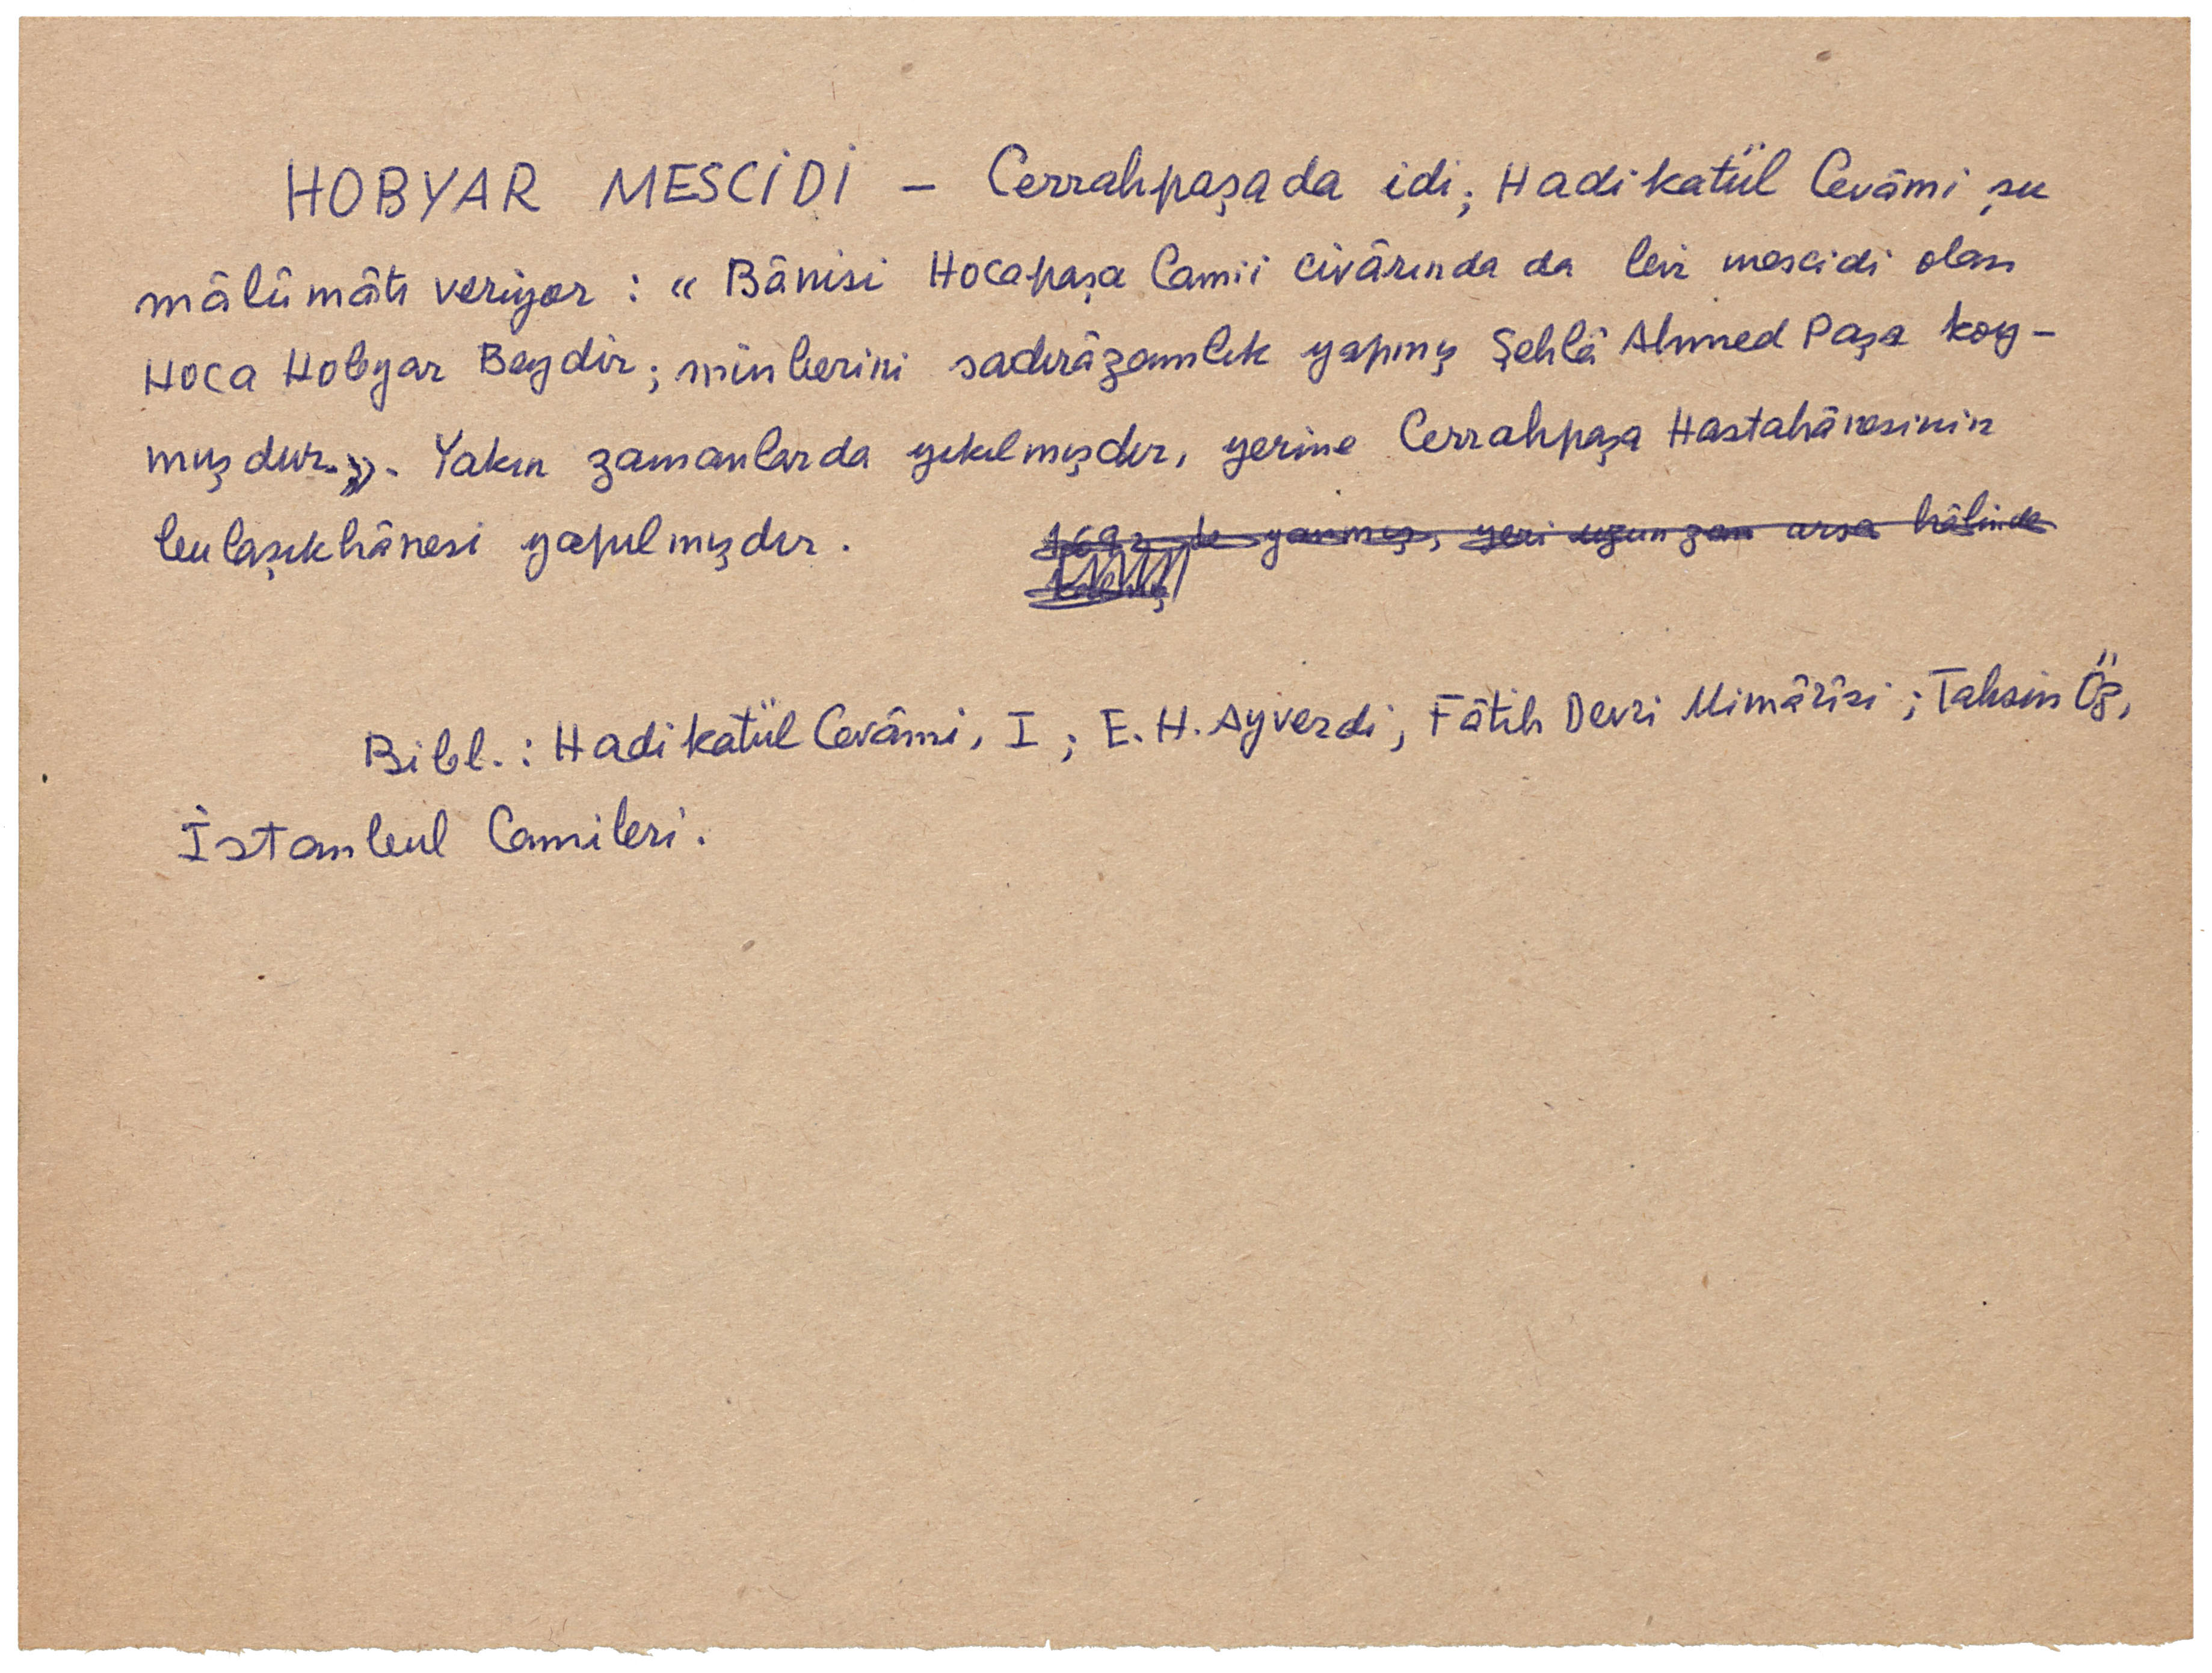 HOBYAR MESCİDİ — Cerrahpaşada idi; Hadikatül Cevâmi şu
mâlûmâtı veriyor : « Bânisi Hocapaşa Camii civârında da bir mescidi olan
Hoca Hobyar Beydir; minberini sadırâzamlık yapmış Şehlâ Ahmed Paşa koy-
muşdur.». Yakın zamanlarda yıkılmışdır, yerine Cerrahpaşa Hastahânesinin
bulaşıkhânesi yapılmışdır. de yanmış, yeri uzun zam arsa hâlinde
Bibl.: Hadikatül Cevâmi, I ; E. H. Ayverdi, Fâtih Devri Mimârîsi ; Tahsin Öz,
İstanbul Camileri.